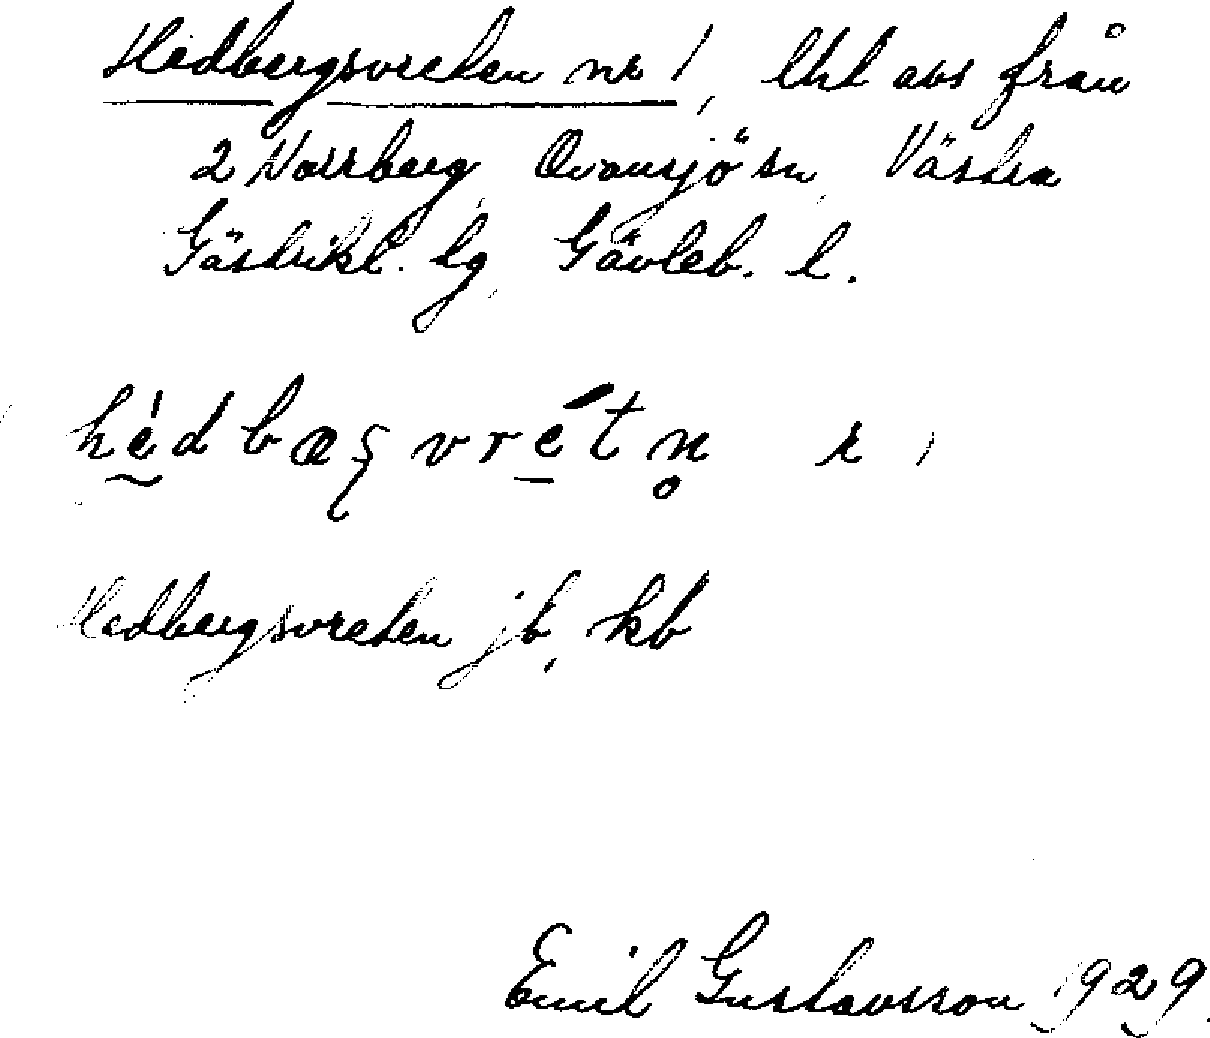 Hedbergsvreten nr 1, lht avs från
2 Norrberg, Ovansjö sn, Västra
Gästrikl. lg, Gävleb. l.
hedbærgvretn̥ r
Hedbergsvreten jb, kb
Emil Gustavsson 1929.